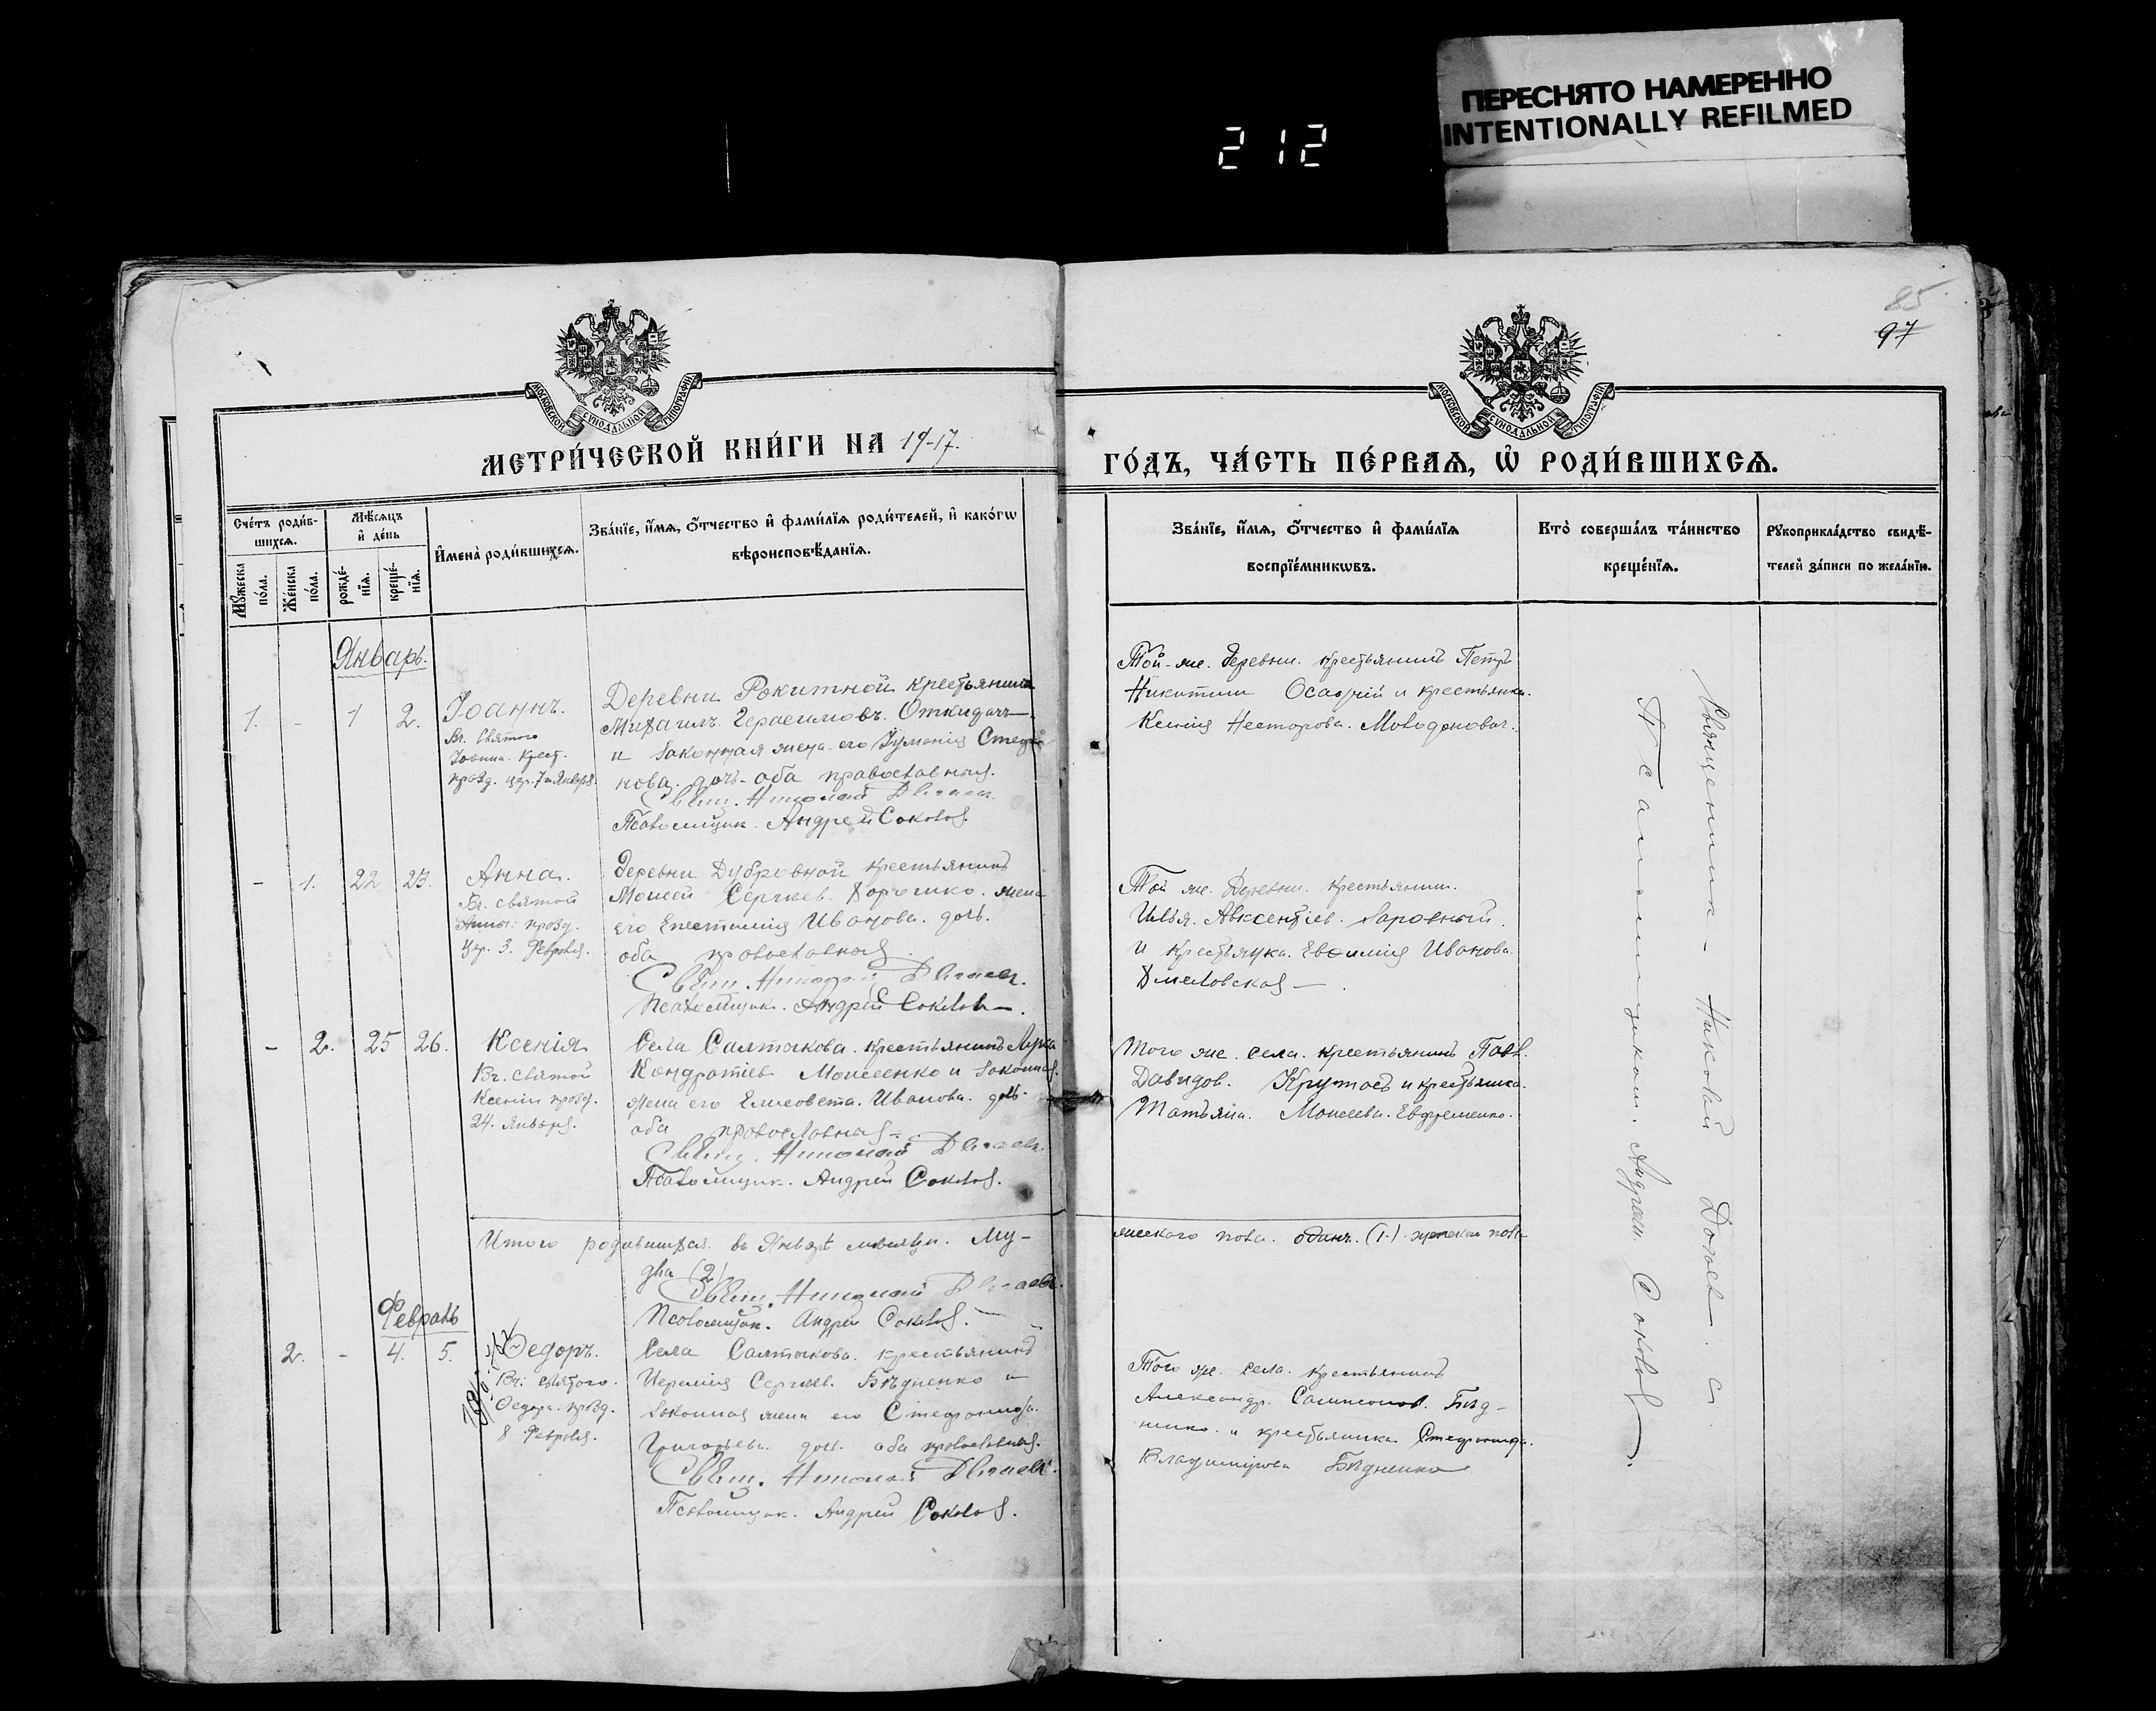 ПЕРЕСНЯТО НАМЕРЕННО
INTENTIONALLY REFILMED
212
85
97
МОСКОВСКОЙ СУНОДАЛЬНОЙ ТИПОГРАФІИ
МОСКОВСКОЙ СУНОДАЛЬНОЙ ТИПОГРАФІИ
МЕТРИ́ЧЕСКОЙ КНИ́ГИ НА 19-17.
ГО́ДЪ, ЧА́СТЬ ПЕ́РВАѦ, Ѡ РОДИ́ВШИХСѦ.
Сче́тъ роди́в-
шихсѧ.
Мꙋжеска по́ла.
Же́нска по́ла.
Мѣ́сѧцъ и де́нь
рожде́-
нїѧ.
креще́-
нїѧ.
Имена̀ роди́вшихсѧ.
Зва́нїе, и́мѧ, ѻ́тчество и фами́лїѧ роди́телей, и како́гѡ
вѣроисповѣ́данїѧ.
Зва́нїе, и́мѧ, ѻ́тчество и фами́лїѧ
воспрїе́мникѡвъ.
Кто̀ соверша́лъ та́инство
креще́нїѧ.
Рꙋкоприкла́дство свидѣ́-
телей за́писи по жела́нїю.
Январь.
1. - 1 2. Іоаннъ.
Вч. святого
Іоанна. Крест.
празд. цер. 7 го Января.
Деревни Рокитной крестьянинъ
Михаилъ Герасимовъ. Откидачъ
и законная жена его
дочь - оба православныя.
Свящ. Николай
Псаломщик. Андрей Соколов.
Той-же. деревни. крестьянинъ Петръ
Никитинъ и крестьянка.
Ксенія Несторова.
- 1. 22 23. Анна.
Вч. святой
Анны: празд.
Цер. 3. Февраля.
Деревни Дубровной крестьянинъ
Моисей Сергѣев. жена
его Иванова. доч.
оба православныя
Свящ. Николай
Псаломщик. Андрей Соколов.
Той же. Деревни. крестьянин.
Илья. Авксентіев.
и крестьянка. Евѳимія Иванова.
- 2. 25 26. Ксенія
Вч. святой
Ксеніи празд.
24. января.
Села Салтыкова. крестьянинъ
Кондратіев Моисеенко и законная
жена его Елисавета. Иванова. доч.
оба православныя.
Свящ. Николай
Псаломщик. Андрей Соколов.
Того же. села. крестьянинъ Павл.
Давидов. и крестьянка.
Татьяна. Моисеева. Ефременко.
Итого родившихся. въ Январѣ месяцѣ. Му-
жескаго пола. одинъ. (1.) женскаго пола
два (2)
Свящ. Николай
Псаломщик. Андрей Соколов.
Февраль
2. - 4. 5. Ѳедоръ.
Вч. святого.
Ѳедора. празд.
8 Февраля.
Села Салтыкова. крестьянинъ
Іеремія Сергѣев. Бѣдненко и
законная жена его Стефанида.
Григорьева. доч. оба православныя.
Свящ. Николай
Псаломщик. Андрей Соколов.
Того же. села. крестьянинъ
Александр. Самсонов. Бѣд-
ненко. и крестьянка Стефанида.
Владимірова Бѣдненко
Священник - Николай
Псаломщиком. Андреем Соколов